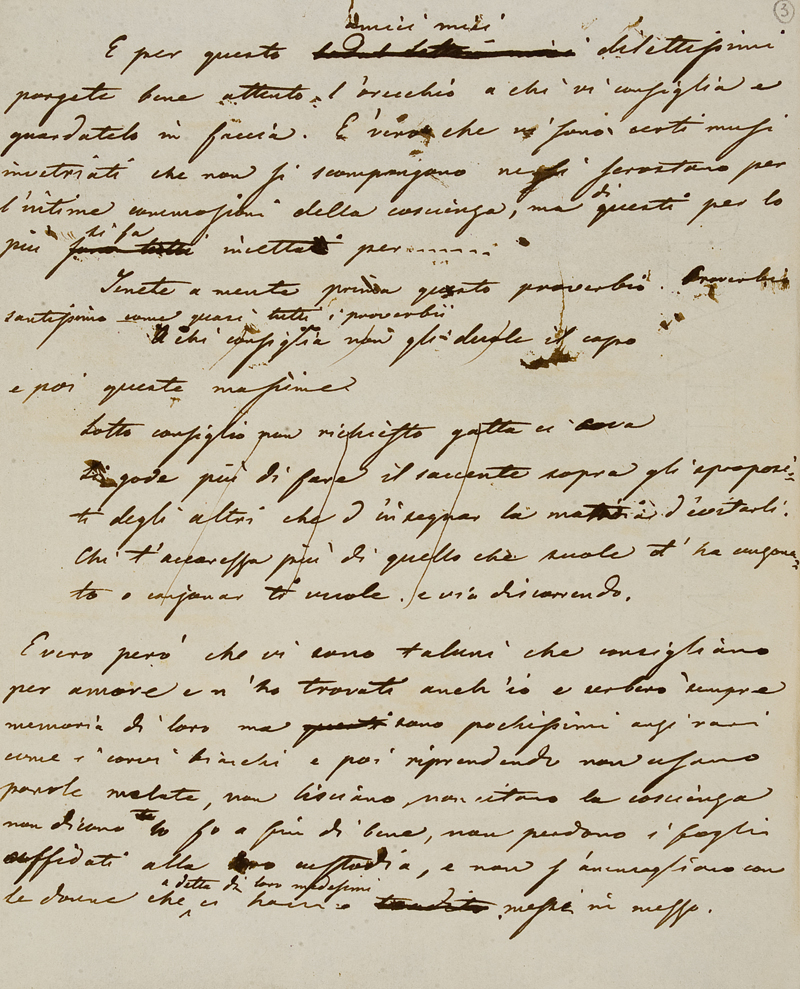 3
amici miei
E per questo dilettissimi
porgete bene attento l'orecchio a chi vi consiglia e
guardatelo in faccia. E' vero che vi sono certi musi
invetriati che non si scompongono nè si scrostano per
l'intime commozioni della coscienza, ma di questi per lo
più si fa incetta per.......
Tenete a mente prima questo proverbio. Proverbio
santissimo come quasi tutti i proverbii
A chi consiglia non gli duole il capo
e poi queste massime
Sotto consiglio non richiesto gatta ci cova
Si gode più di fare il saccente sopra gli sproposi-
ti degli altri che d'insegnar la materia d'evitarli.
Chi t'accarezza più di quello che suole t'ha inganna-
to o ingannar ti vuole. e via discorrendo.
E vero però che vi sono taluni che consigliano
per amore e n'ho trovati anch'io e serberò sempre
memoria di loro ma sono pochissimi anzi rari
come i corvi bianchi e poi riprendendo non usano
parole melate, non lisciano, non citano la coscienza
non dicono te lo fo a fin di bene, non perdono i fogli
affidati alla loro custodia, e non s'accapigliano con
le donne che a detta di loro medesimi ci hanno messi in mezzo.